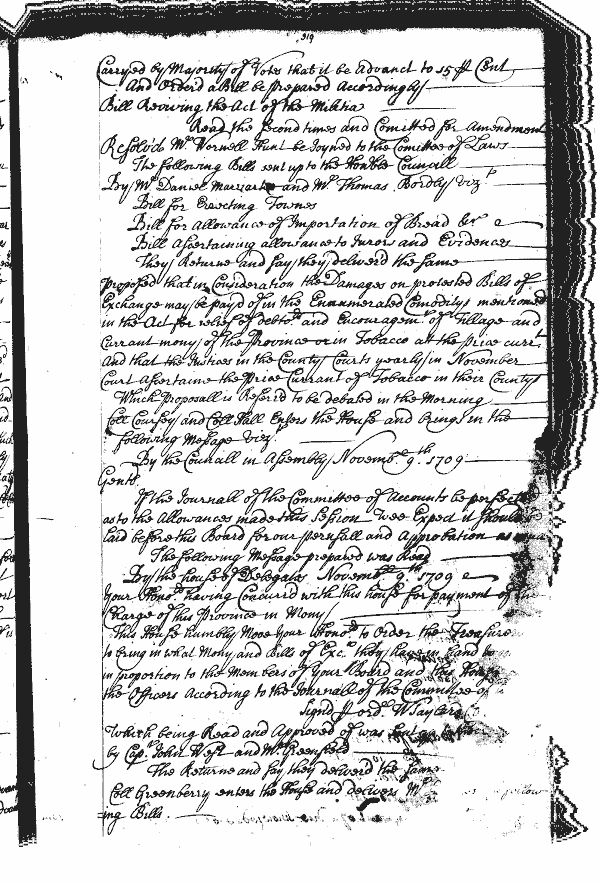 319
Carryed by Majority of Votes that it be Advanct to 15 ⅌ Cent
And Orderd a Bill be prepared Accordingly
Bill Reviving the Act of the Militia
Read the second times and Comitted for Amendment
Resolv'd Mr Wornell Hunt be Joyned to the Comittee of Laws
The following Bills sent up to the Honble Councill
By Mr Daniel and Mr Thomas Bordly viz
Bill for Erecting Townes
Bill for Allowance of Importation of Bread &c
Bill Assertaining allowance to Jurors and Evidences
They Returne and say they deliverd the same
proposed that in Consideration the Damages on protested Bills of
Exchange may be payd of in the Enumerated Comoditys mentioned
in the Act for relief of debtors and Encouragemt of Tillage and
Currant mony of the Province or in Tobacco at the price currt
And that the Justices in the County Courts yearly in November
Court Assertaine the Price Currant of Tobacco in their County
Which Proposall is Referd to be debated in the Morning
Coll Coursey and Coll Hall Enters the House and brings in the
following Message viz.
By the Councill in Assembly Novembr 9th 1709
Gents.
If the Journall of the Committee of Accounts be perfected
as to the Allowances made this Session wee Expect it should be
laid before this Board for our perusall and Approbation as
The following Message prepared was Read
By the house of Delegates Novembr 9th 1709
Your Honrs having Concurd with this house for payment of the
Charge of this Province in Mony
This House humbly Move your Honrs to Order the Treasurer
to bring in what Mony and Bills of Exc. they have in hand
in proportion to the Members of your Board and this House
the Officers According to the Journall of the Committee of
Signd ⅌ ordr W Taylard
Which being Read and Approved of was sent
by Capt John West and Mr Greenfield
The Returne and say they deliverd the same
Coll Greenberry enters the House and delivers
ing Bills.